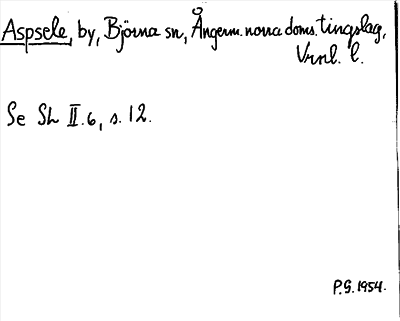 Aspsele, by, Björna sn, Ångerm. norra doms. tingslag,
Vrnl. l.
Se Sh II.6, s. 12.
P.G. 1954.